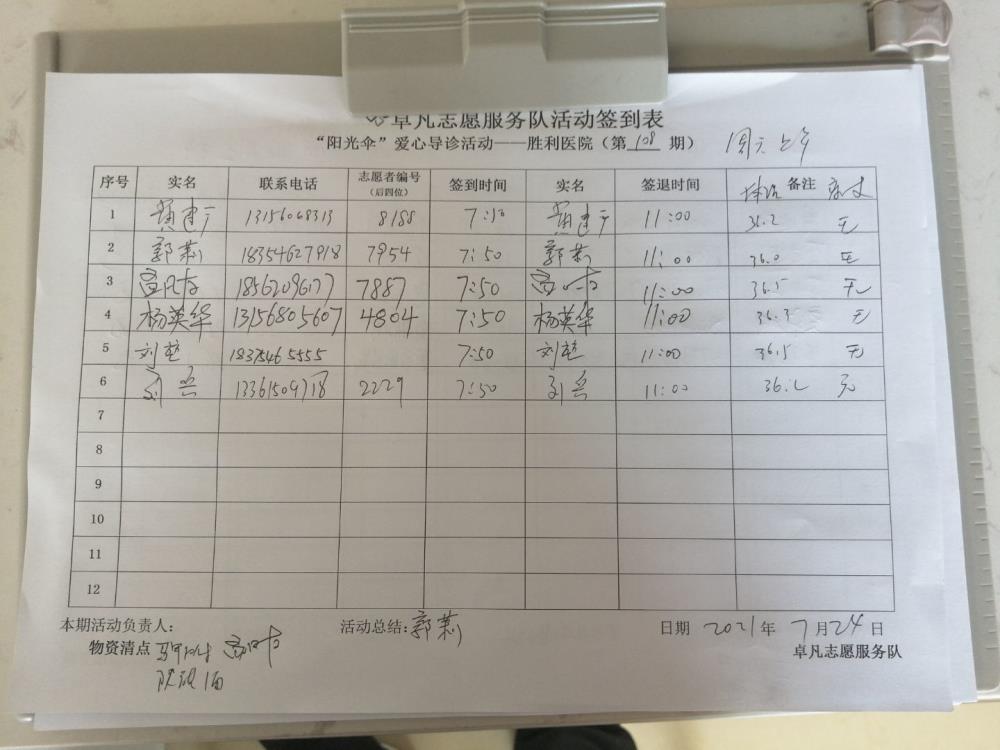 卓凡志愿服务队活动签到表
“阳光伞”爱心导诊活动——胜利医院（第 108 期） 周六上午
序号 实名 联系电话 志愿者编号（后四位） 签到时间 实名 签退时间 备注
1 13156068313 8188 7:50 11:00 36.2 无
2 郭莉 18354627918 7954 7:50 郭莉 11:00 36.0 无
3 18562096177 7887 7:50 11:00 36.5 无
4 杨英华 13156805607 4804 7:50 杨英华 11:00 36.3 无
5 刘 7:50 刘 11:00 36.5 无
6 刘 13361509718 2229 7:50 刘 11:00 36.2 无
7
8
9
10
11
12
本期活动负责人： 活动总结：郭莉 日期 2021年 7月24日
物资清点 卓凡志愿服务队